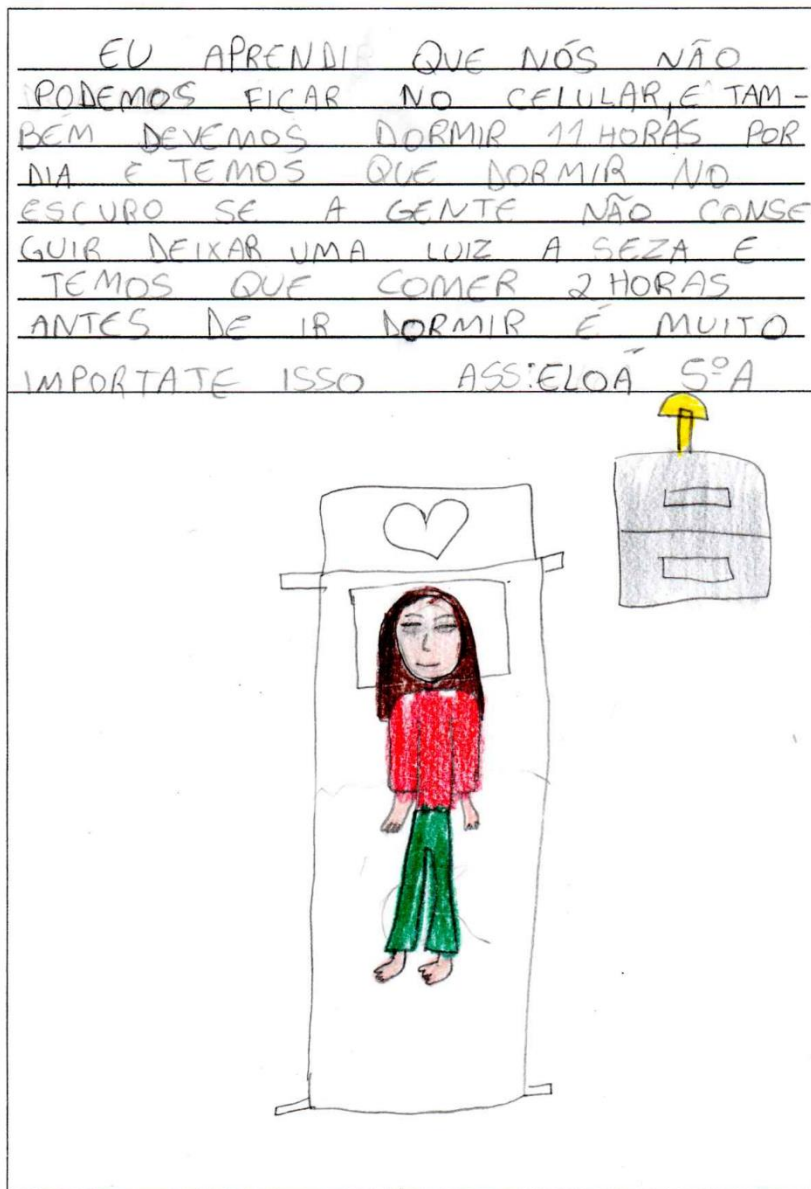 EU APRENDI QUE NÓS NÃO
PODEMOS FICAR NO CELULAR, E TAM-
BÉM DEVEMOS DORMIR 11 HORAS POR
DIA E TEMOS QUE DORMIR NO
ESCURO SE A GENTE NÃO CONSE
GUIR DEIXAR UMA LUIZ A SEZA E
TEMOS QUE COMER 2 HORAS
ANTES DE IR DORMIR É MUITO
IMPORTATE ISSO ASS: ELOÁ 5º A